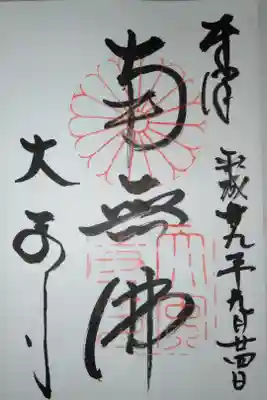 奉拝
平成廿九年九月廿四日
南無佛
大